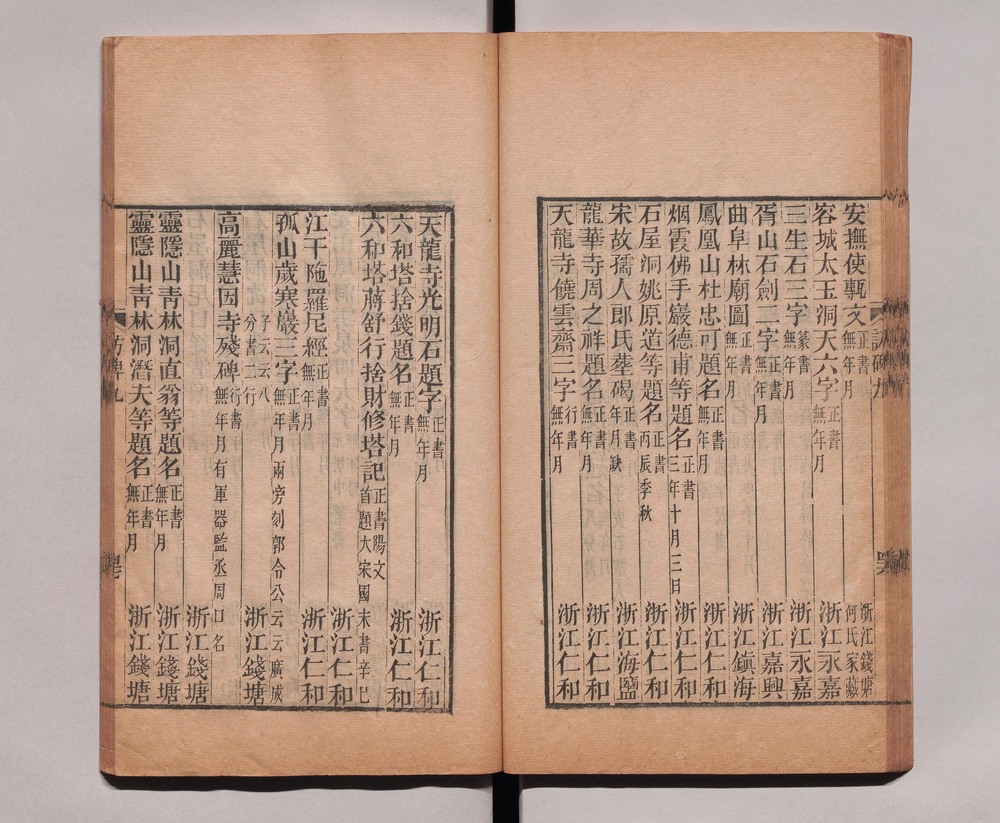 安撫使甎文 正書無年月 浙江錢塘何氏家藏
容城太玉洞天六字 正書無年月 浙江永嘉
三生石三字 篆書無年月 浙江永嘉
胥山石劍二字 正書無年月 浙江嘉興
曲阜林廟圖 正書無年月 浙江鎮海
鳳凰山杜忠可題名 正書無年月 浙江仁和
烟霞佛手巖德甫等題名 正書三年十月三日 浙江仁和
石屋洞姚原道等題名 正書丙辰季秋 浙江仁和
宋故孺人郎氏葬碣 正書年月缺 浙江海鹽
龍華寺周之祥題名 正書無年月 浙江仁和
天龍寺饒雲齋三字 行書無年月 浙江仁和
天龍寺光明石題字 正書無年月 浙江仁和
六和塔捨錢題名 正書無年月 浙江仁和
六和塔蔣舒行捨財修塔記 正書陽文首題大宋國末書辛巳
浙江仁和
江干陁羅尼經 正書無年月 浙江仁和
孤山歲寒巖三字 正書無年月兩旁刻郭令公云云廣成
子云云八分書二行 浙江錢塘
高麗慧因寺殘碑 行書無年月有軍器監丞周口名
浙江錢塘
靈隱山青林洞直翁等題名 正書無年月 浙江錢塘
靈隱山青林洞潛夫等題名 正書無年月 浙江錢塘